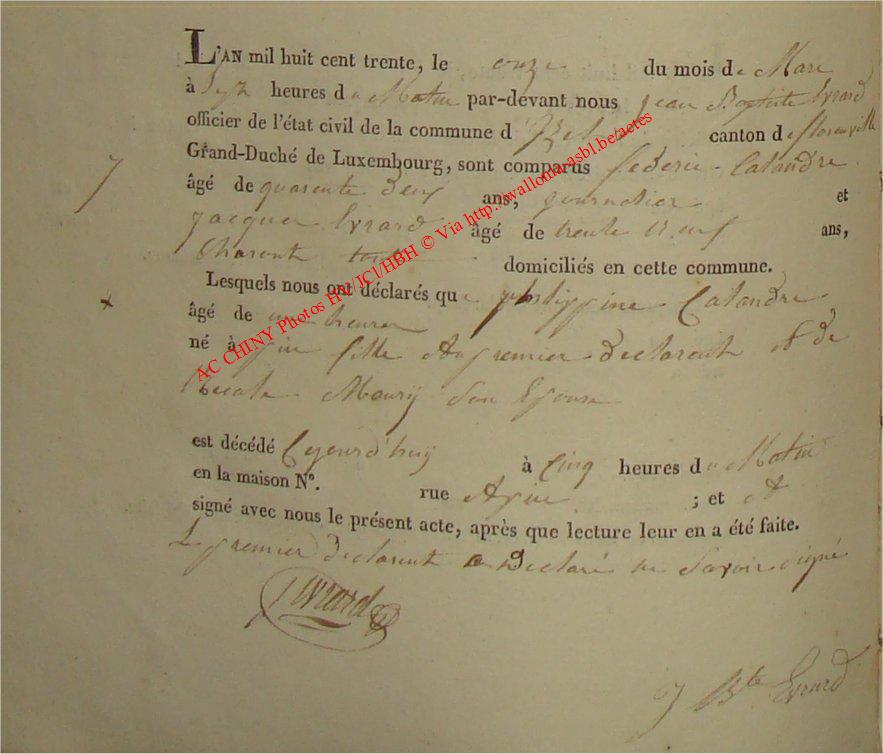 L'AN mil huit cent trente, le onze du mois de Mars
à Sept heures du Matin par-devant nous jean Baptiste Evrard
officier de l'état civil de la commune d canton de florenville
Grand-Duché de Luxembourg, sont comparus federic Calandre
7
âgé de quarente deux ans, journalier et
jacques Evrard âgé de trente neuf ans,
domiciliés en cette commune.
Lesquels nous ont déclarés que philippine Calandre
âgé de une heure
né à fille du premier declarent et de
Maury Son Epouse
est décédé Cejourd'huy à Cinq heures du Matin
en la maison N°. rue ; et
signé avec nous le présent acte, après que lecture leur en a été faite.
Le premier declarent a Declaré ne Savoir signé
J Evrard
J Bte Evrard
AC CHINY Photos HW/JCl/HBH © Via http://wallonia.asbl.be/actes